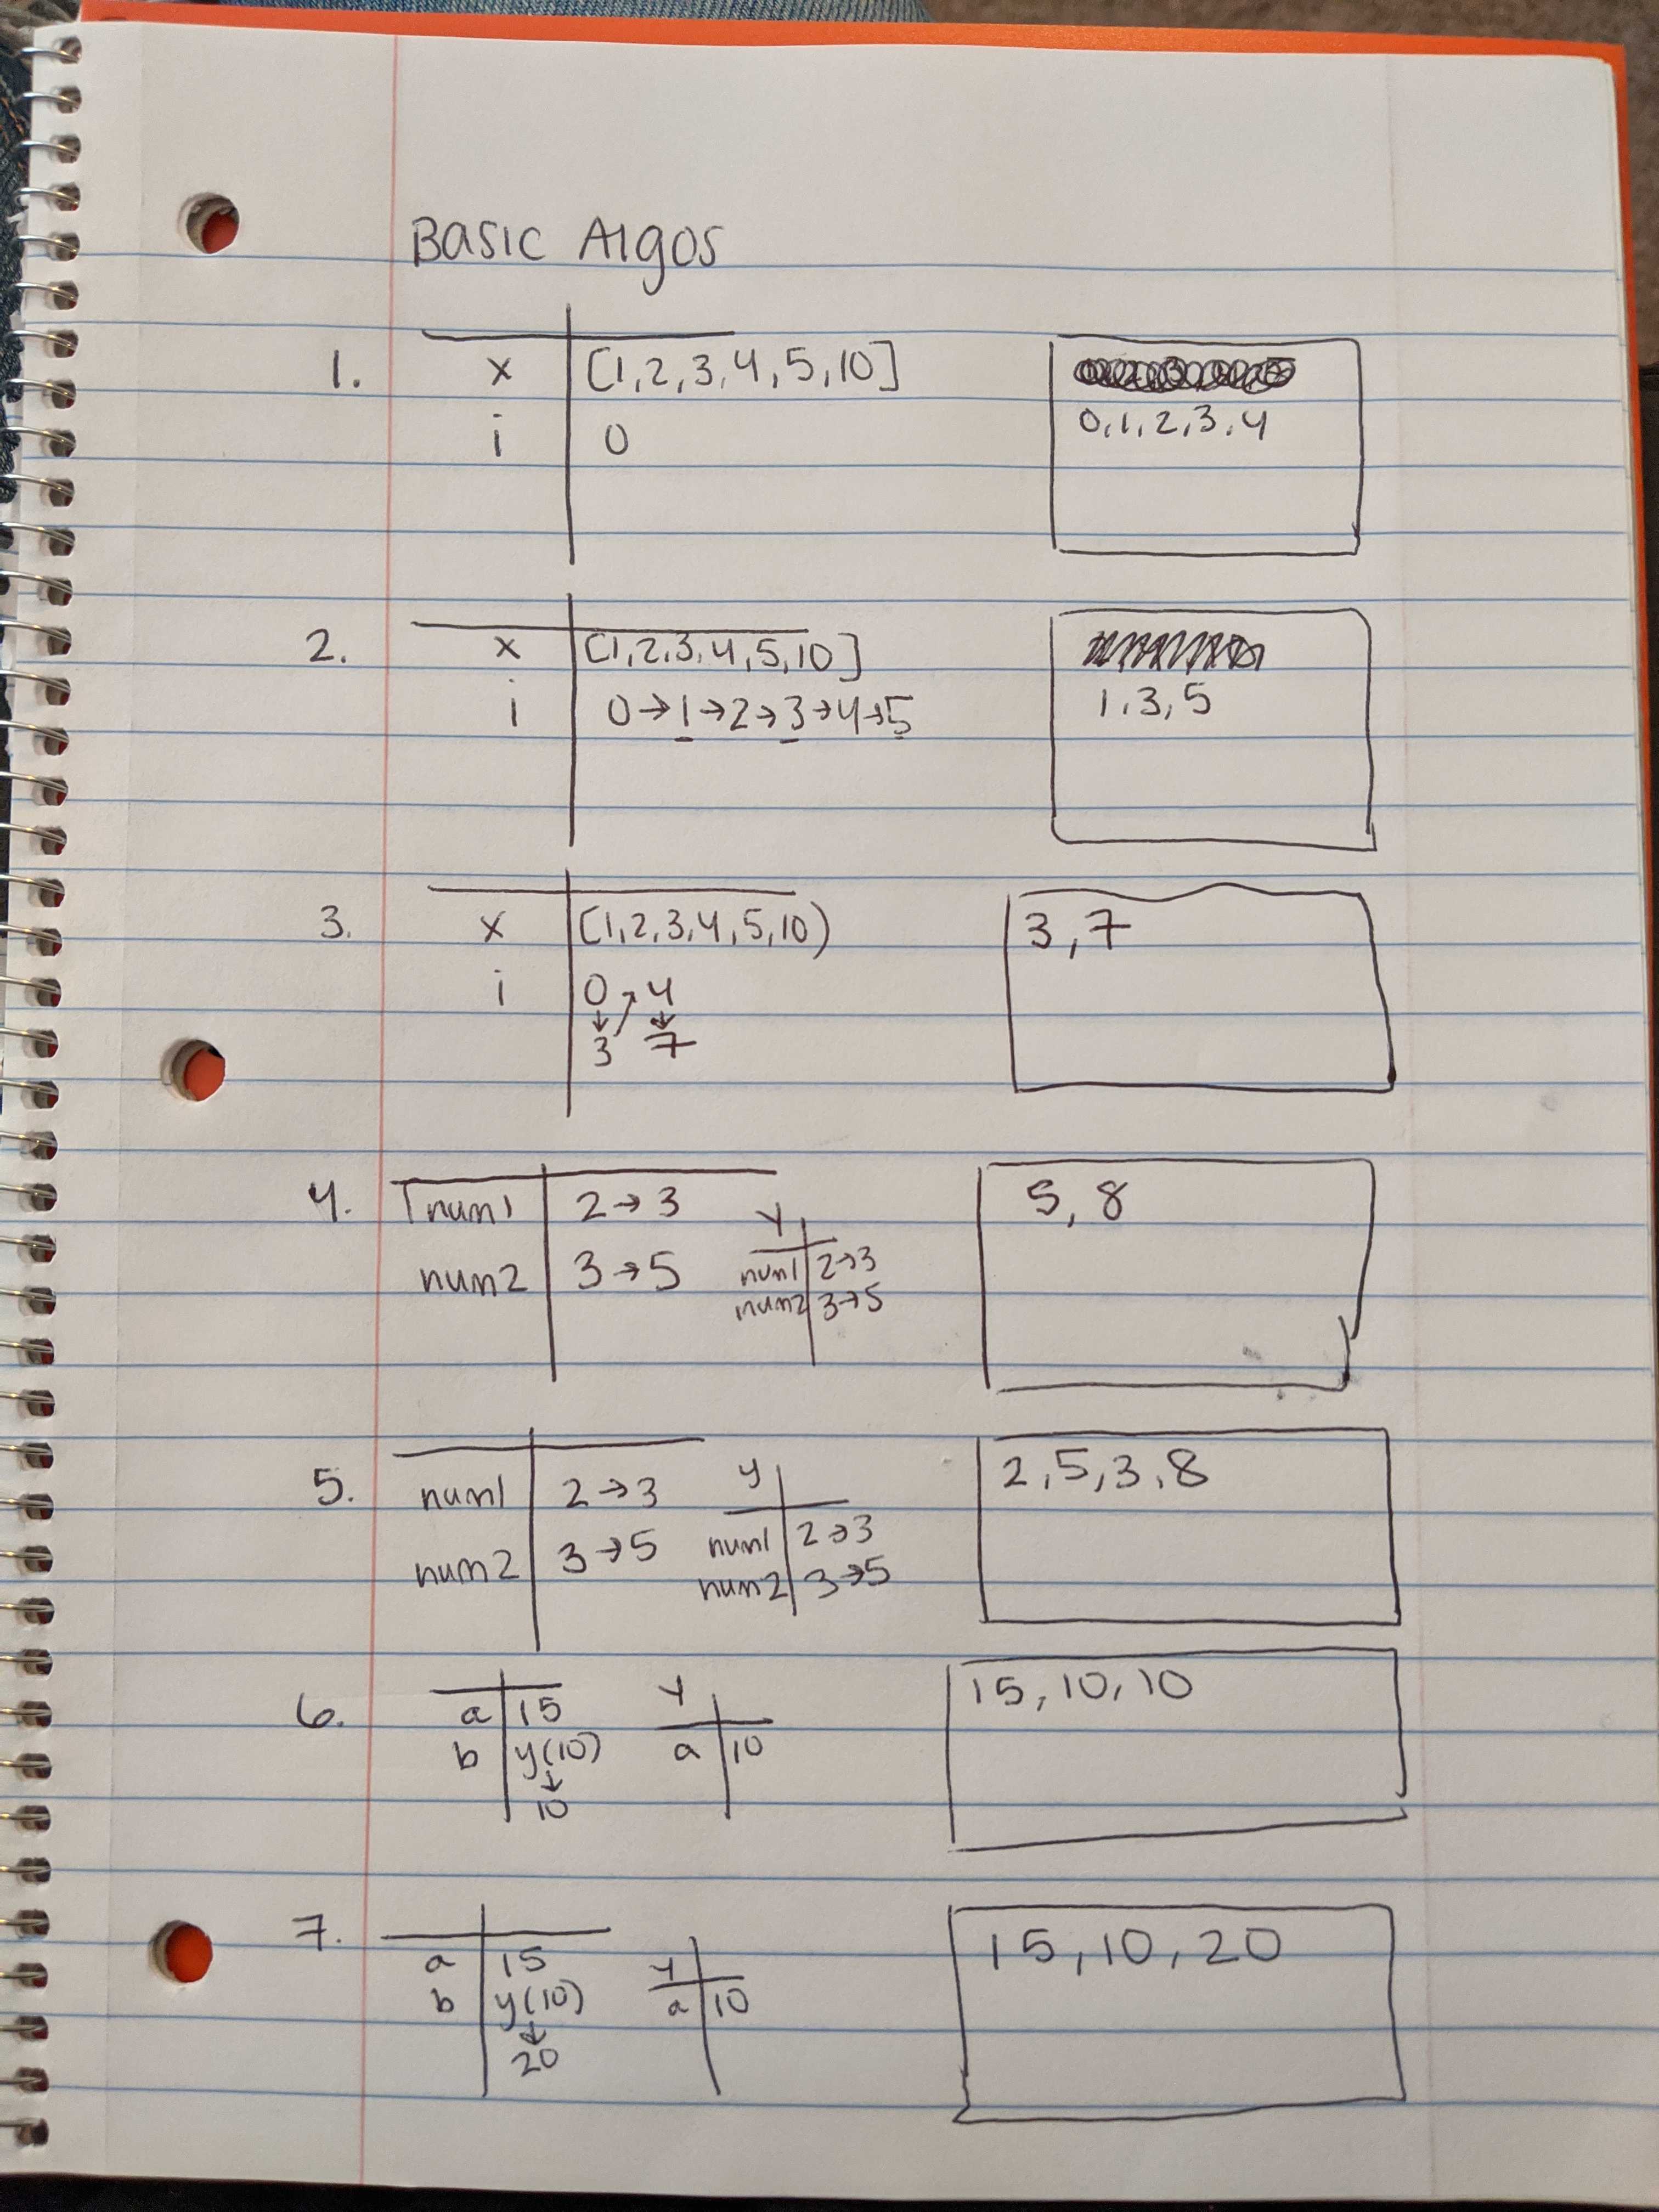 Basic Algos
1. x [1,2,3,4,5,10]
i 0
0,1,2,3,4
2. x [1,2,3,4,5,10]
i 0→1→2→3→4→5
1,3,5
3. x [1,2,3,4,5,10)
i 0 → 4
↓ ↓
3 7
3,7
4. num1 2→3
num2 3→5
y
num1 2→3
num2 3→5
5, 8
5. num1 2→3
num2 3→5
y
num1 2→3
num2 3→5
2,5,3,8
6. a 15
b y(10)
↓
10
y
a 10
15,10,10
7. a 15
b y(10)
↓
20
y
a 10
15,10,20